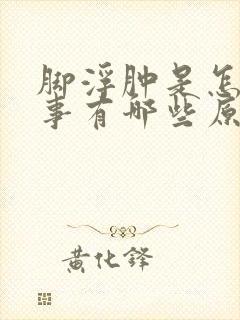 脚浮肿是怎
事有哪些原
黄化锋